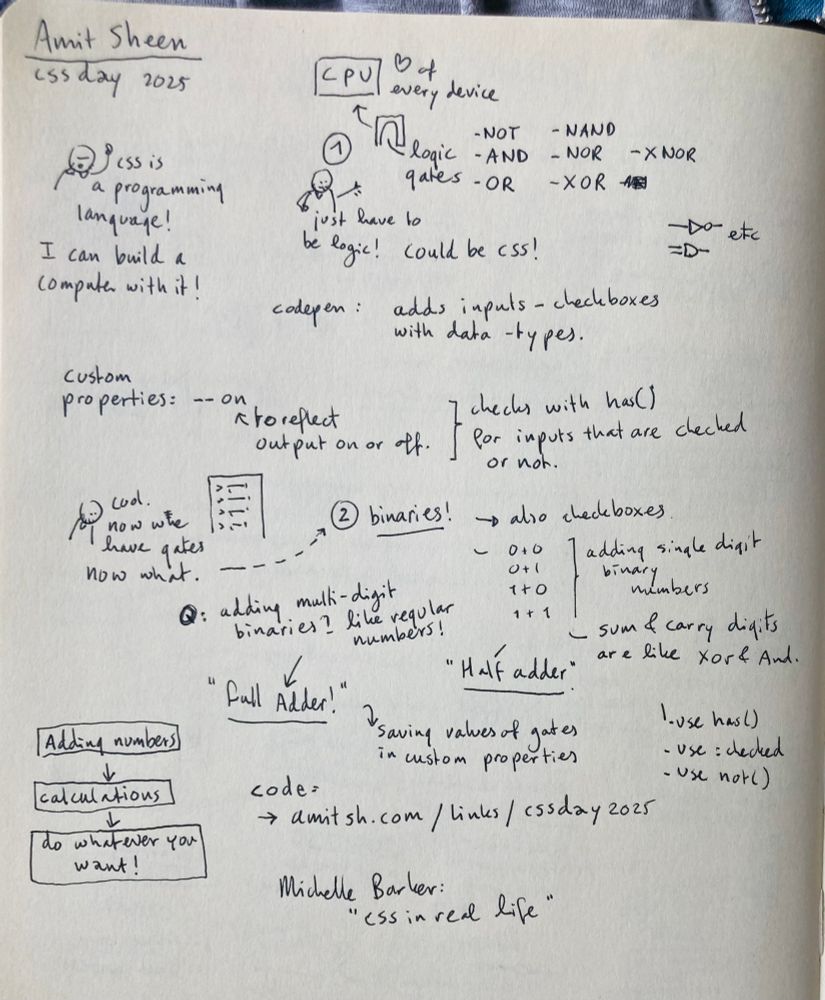 Amit Sheen
css day 2025
CPU
♡ of
every device
css is
a programming
language!
I can build a
computer with it!
①
logic
gates
-NOT -NAND
-AND -NOR -XNOR
-OR -XOR
just have to
be logic! could be css!
etc
codepen: adds inputs - checkboxes
with data-types.
custom
properties: --on
to reflect
output on or off.
checks with has()
for inputs that are checked
or not.
cool.
now we
have gates
now what.
② binaries! → also checkboxes.
0+0
0+1
1+0
1+1
adding single digit
binary
numbers
sum & carry digits
are like Xor & And.
Q: adding multi-digit
binaries? like regular
numbers!
"Half adder"
"Full Adder!"
saving values of gates
in custom properties
-use has()
-use :checked
-use not()
Adding numbers
calculations
do whatever you
want!
code:
→ amitsh.com/links/cssday2025
Michelle Barker:
"css in real life"